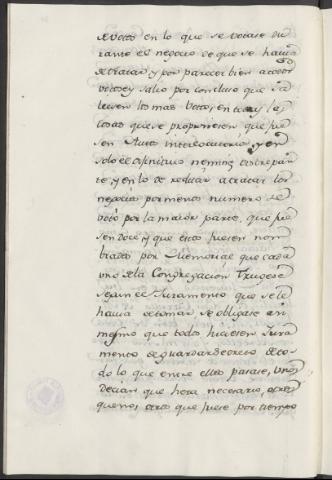 de Votos en lo que se votase du
rante el negocio de que se havia
de tratar, y por parecer bien a todos
votose y salio por concluso que sa
liesen los mas Votos, en todas las
cosas que se propusiesen que fue
sen Auto interlocutorio, y en
solo el difinitivo nemine discrepan
te, y en lo de reducir a tratar los
negocios por menos numero se
votó por la maior parte, que fue
sen doce, y que estos fuesen nom
brados por Memorial que cada
uno de la Congregacion Truxese
segun el Juramento que se le
havia de tomar se obligase an
mesmo que todos hiciesen Jura
mento de guardar secreto de to
do lo que entre ellos pasase, unos
decian que hera necesario, otros
que no, otros que fuese por tiempo